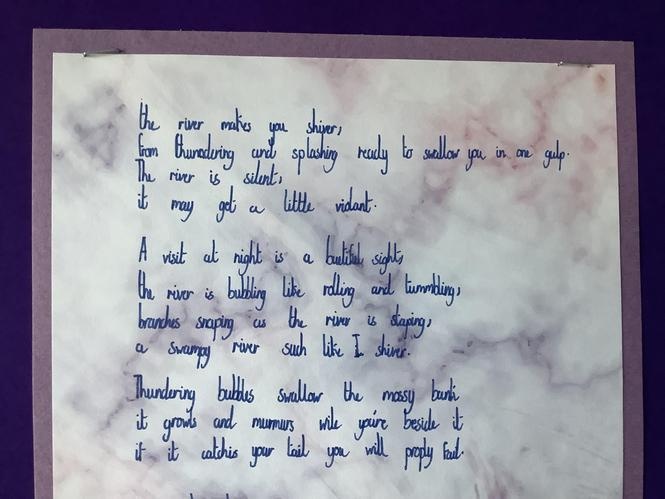 the river makes you shiver,
from thunndering and splashing ready to swallow you in one gulp.
The river is silent,
it may get a little vidant.
A visit at night is a buetiful sight,
the river is bubbling like rolling and tummbling,
branches snaping as the river is staping,
a swampy river such like I shiver.
Thundering bubbles swallow the mossy bank
it growls and murmurs wile you're beside it
if it catchis your tail you will proply fail.